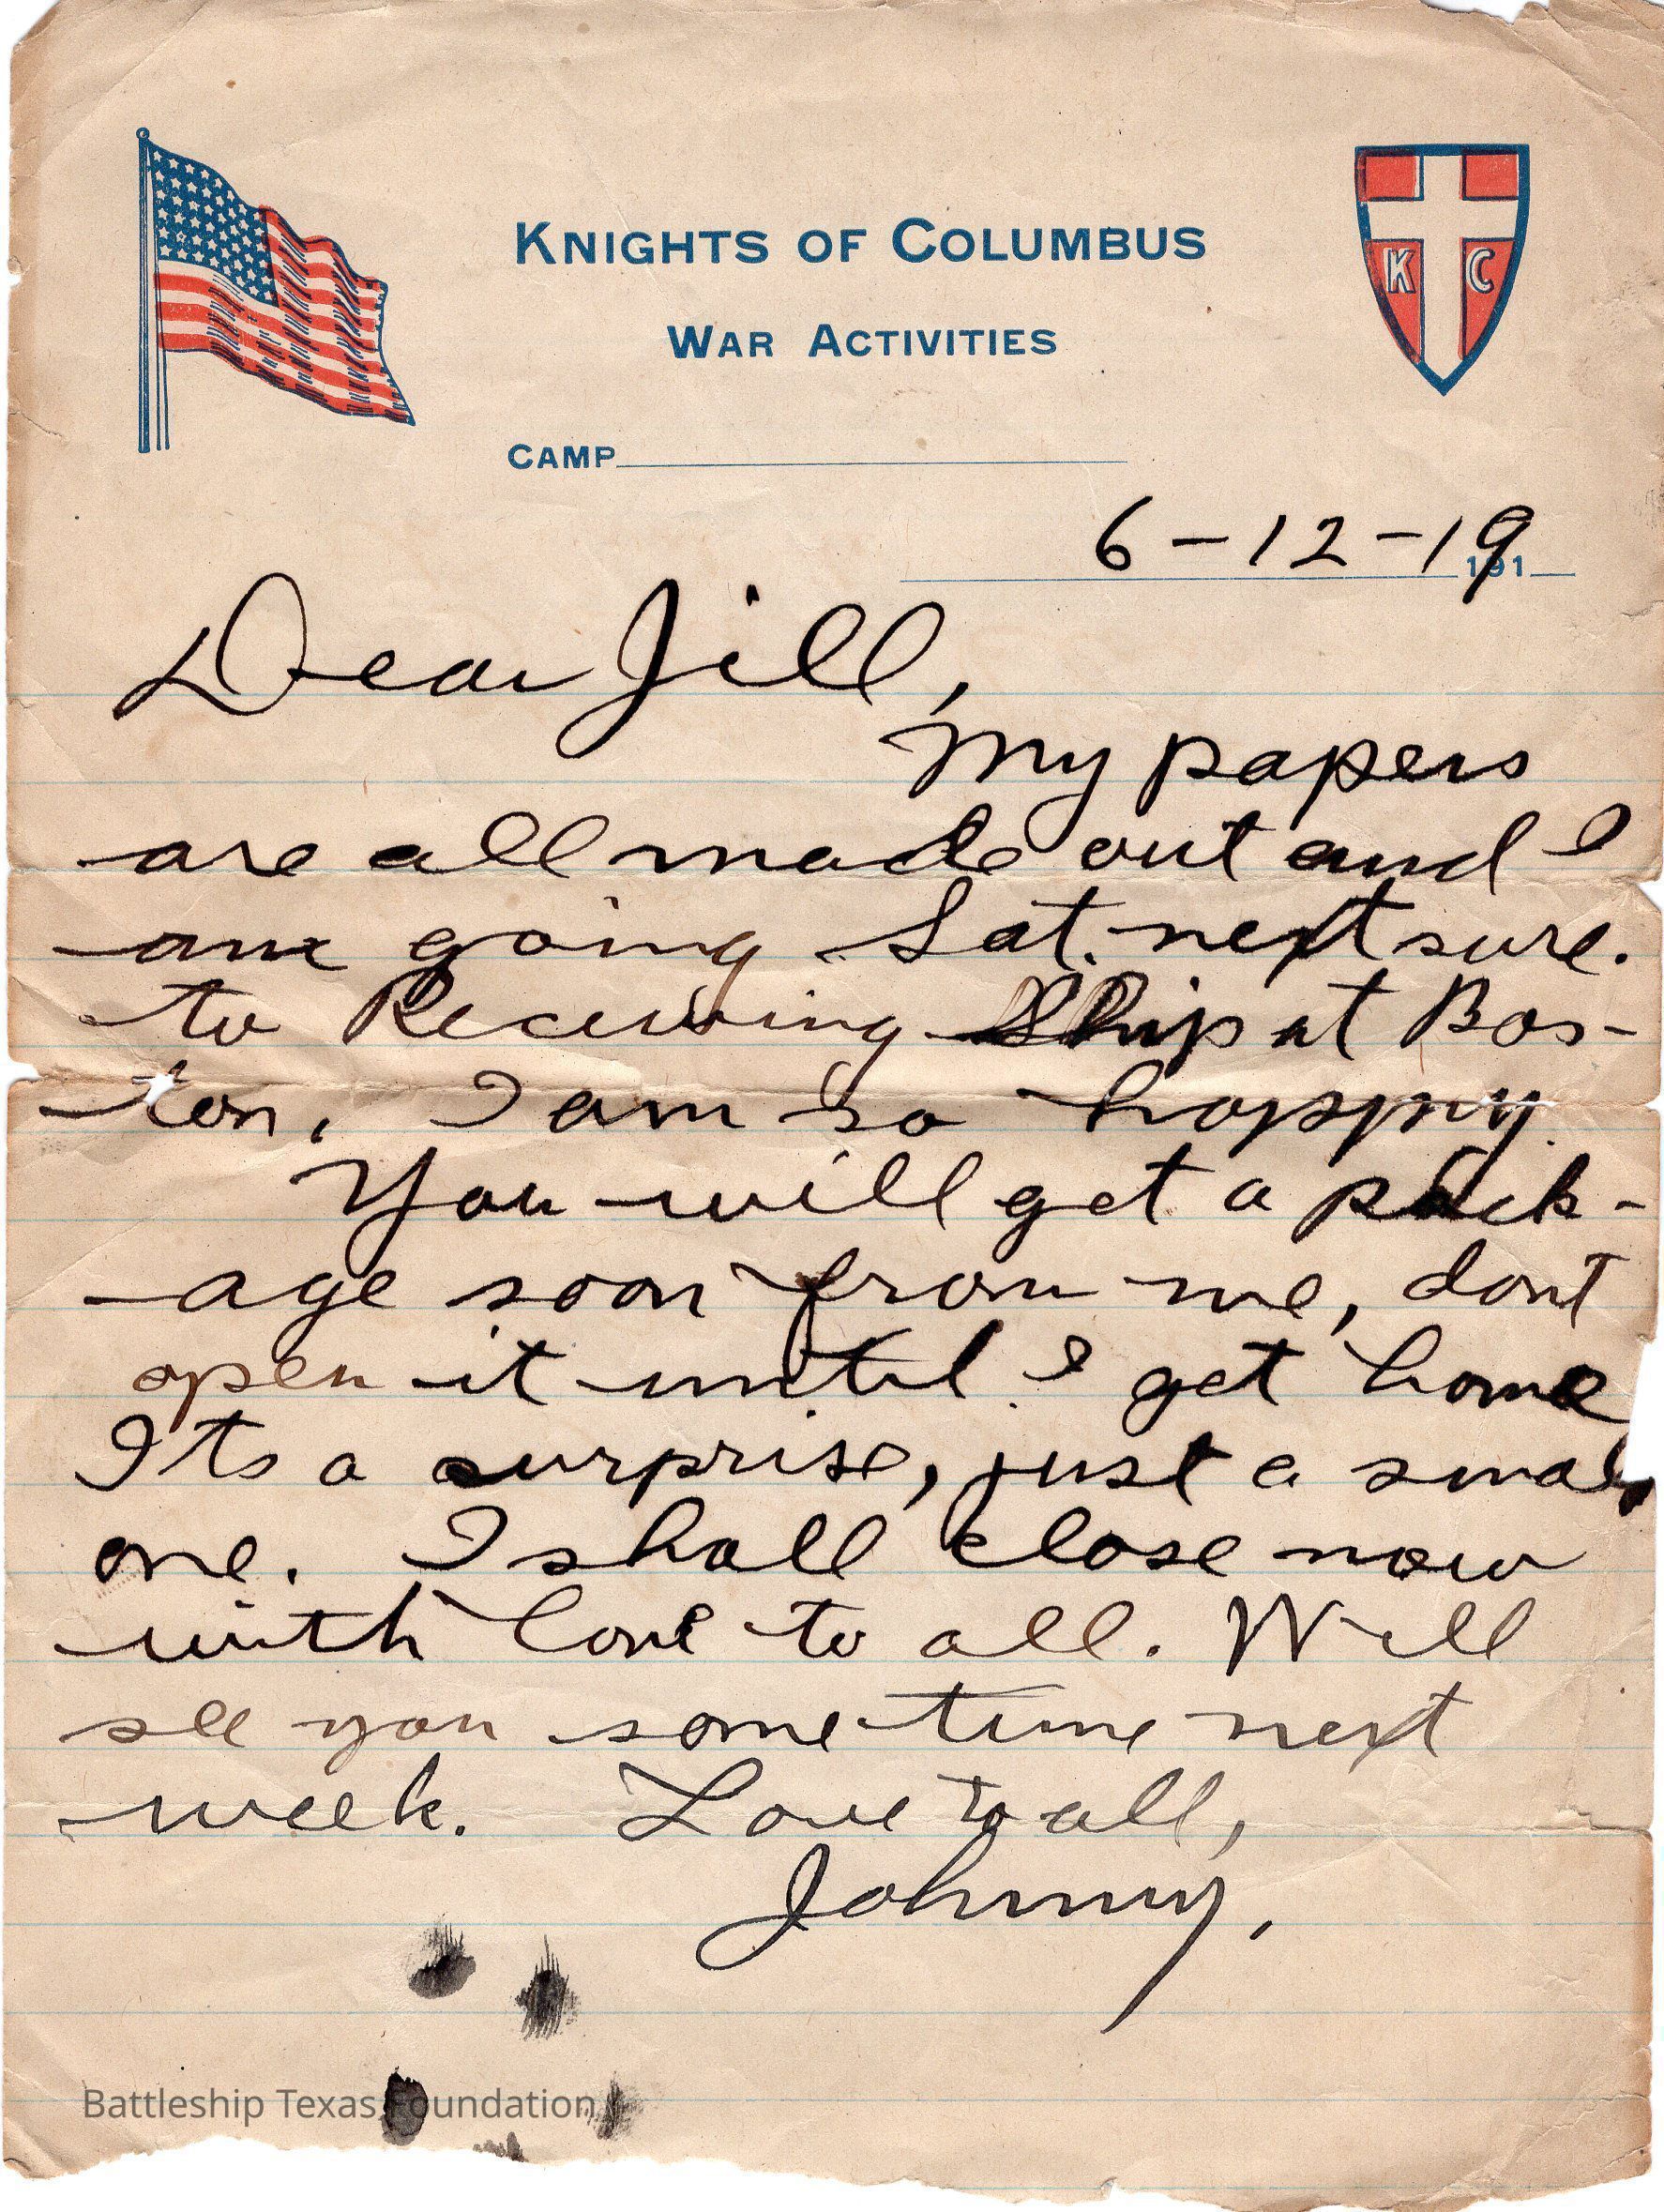 KNIGHTS OF COLUMBUS
WAR ACTIVITIES
K C
CAMP
6-12-19
191
Dear Jill,
My papers
are all made out and I
am going Sat. next sure.
to Receiving Ship at Bos-
ton. I am so happy.
You will get a pack-
age soon from me, dont
open it until I get home
Its a surprise, just a small
one. I shall close now
with love to all. Will
see you some time next
week. Love to all,
Johnny.
Battleship Texas Foundation